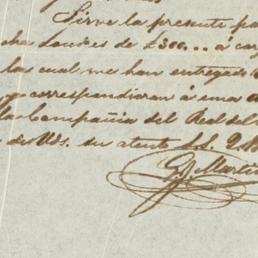 Sirve la presente pa
cha Londres de £300... á ca
las cual me han entregado
correspondieran á una
la Compañia del Real del
de Vds. su atento S.S. Q.
Martin